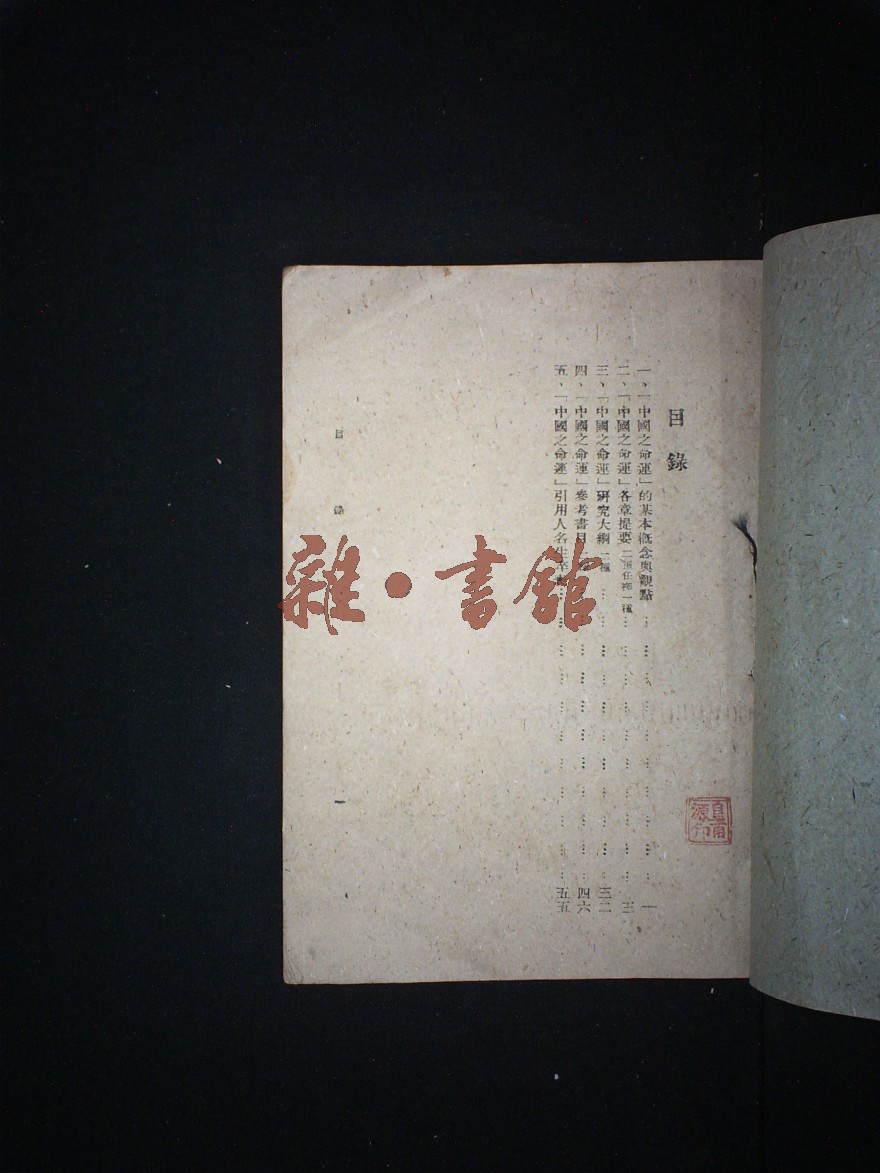 目錄
一、「中國之命運」的基本概念與觀點………………一
二、「中國之命運」各章提要………………三
三、「中國之命運」研究大綱 二種………………三二
四、「中國之命運」參考書目………………四六
五、「中國之命運」引用人名生卒………………五五
目 錄
一
雜·書館